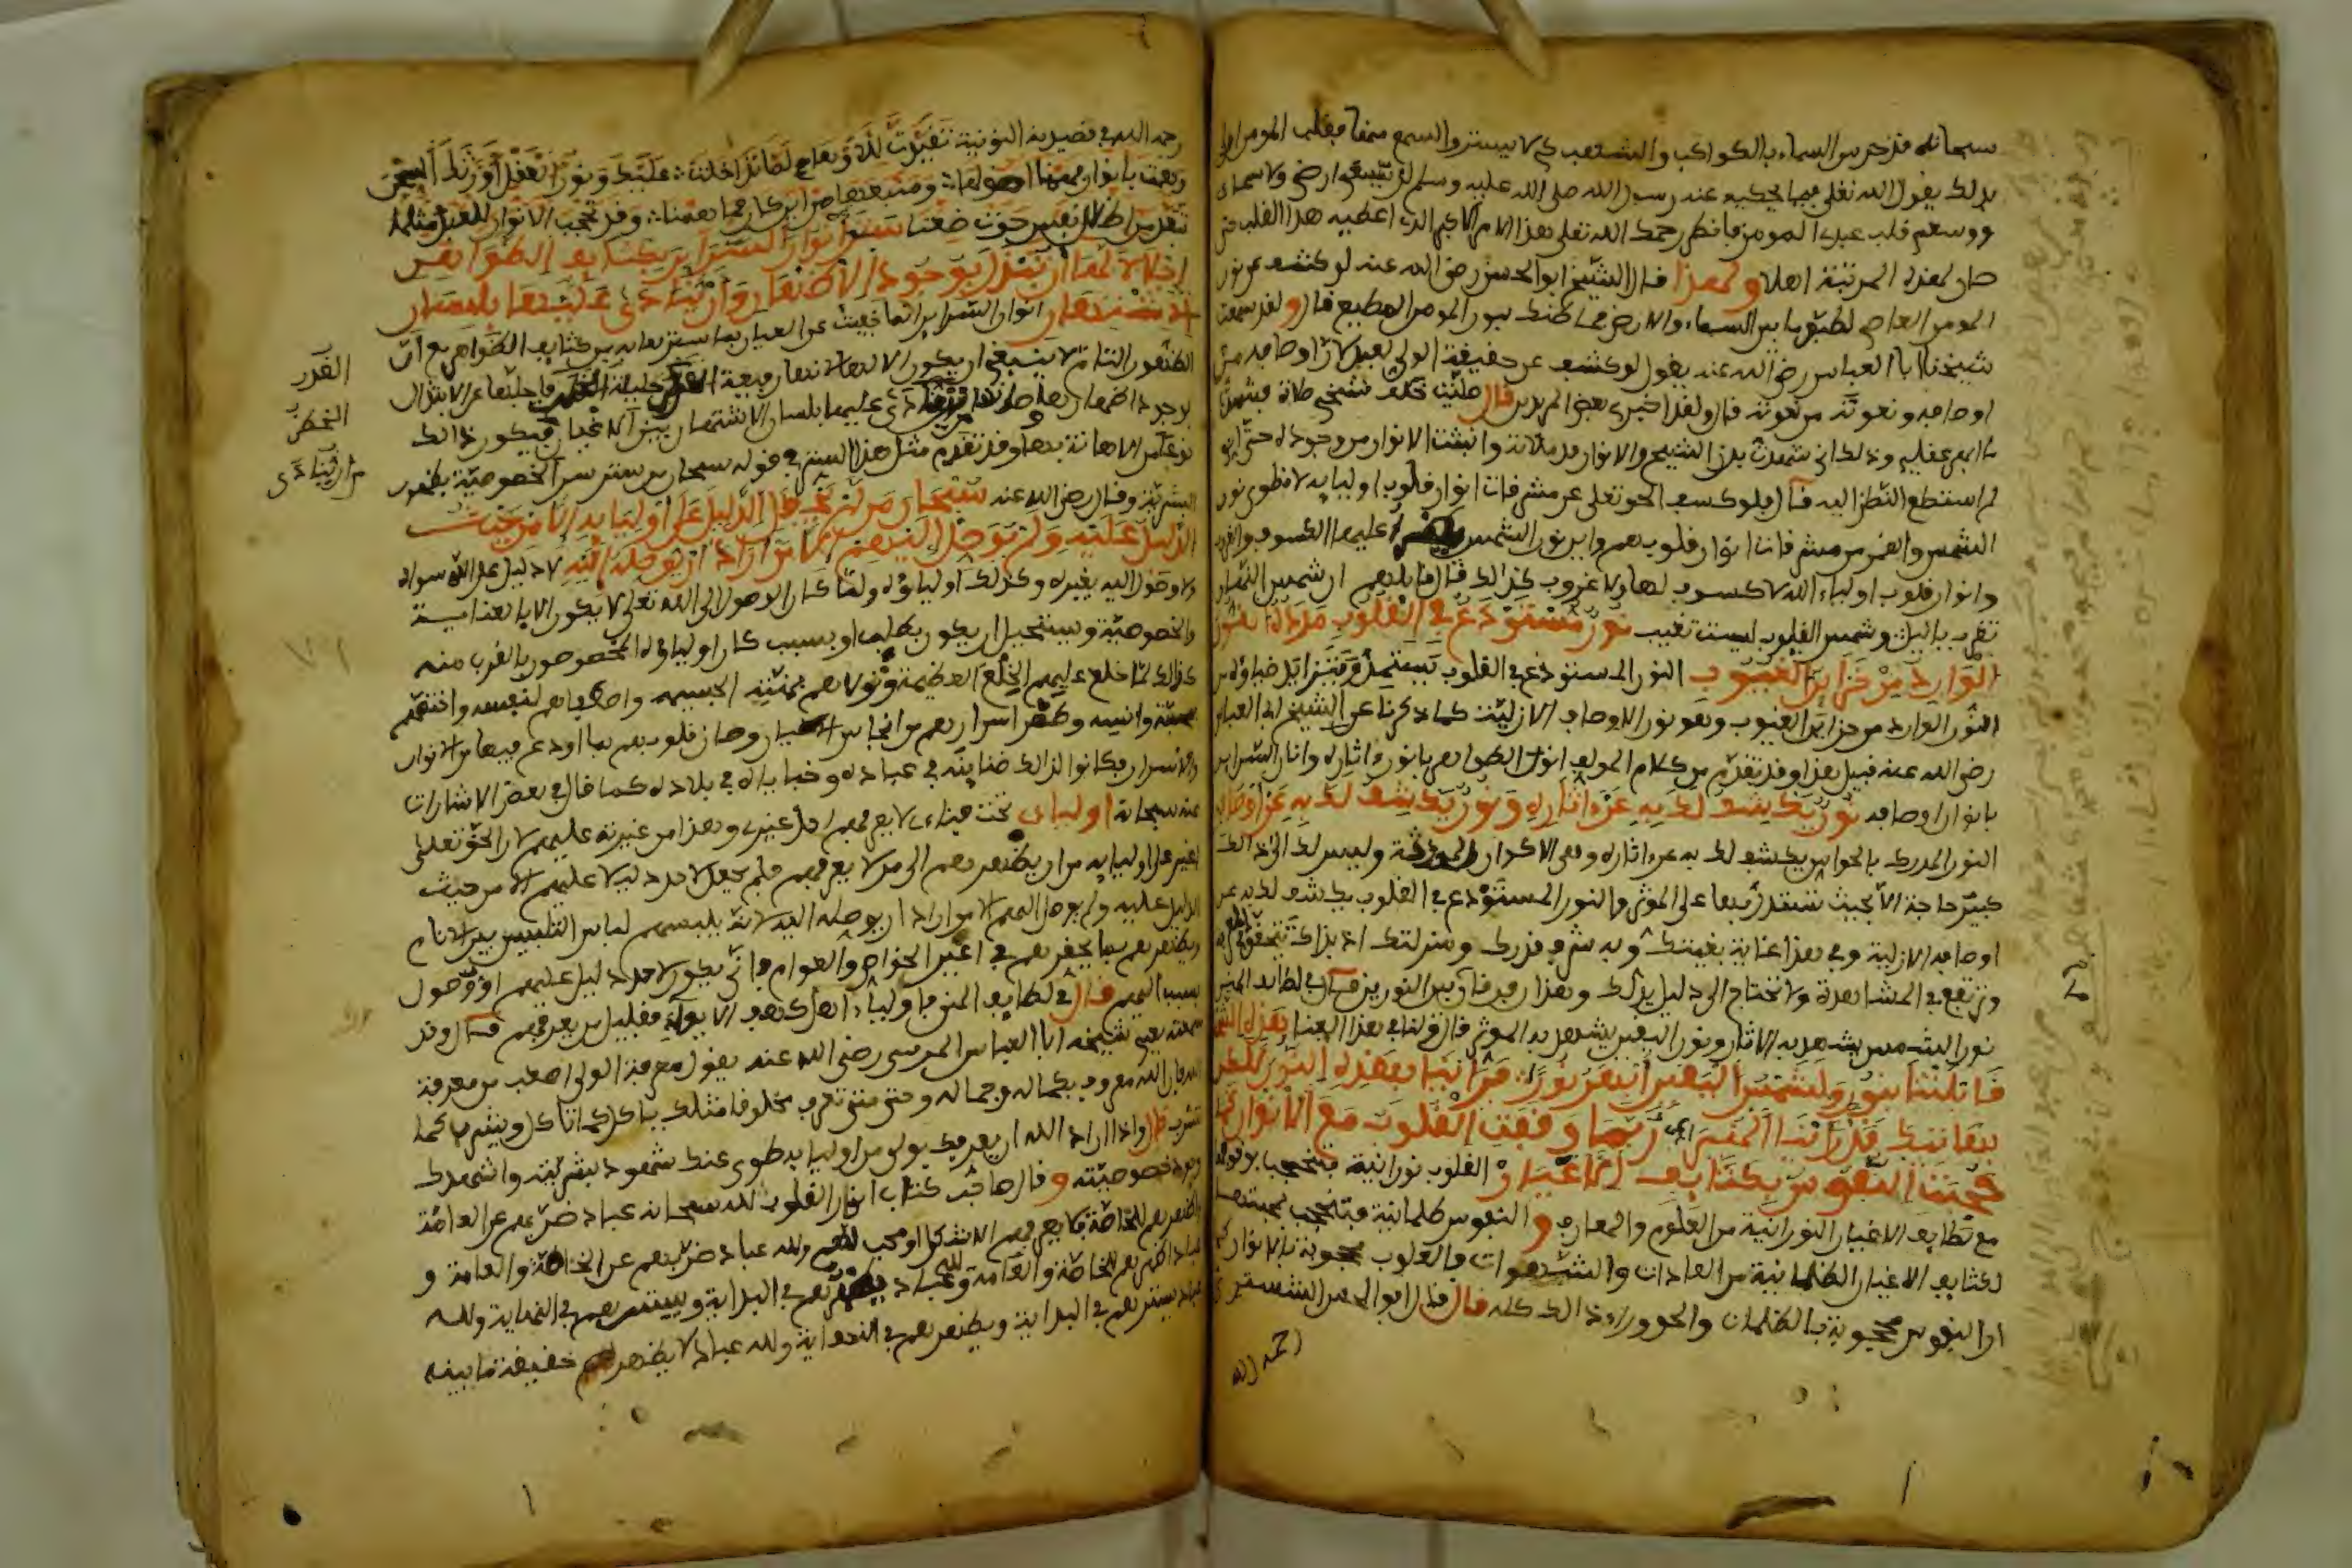 سبحانه قد حرس السماء بالكواكب والشهب كي لا يسترق السمع منها فقلب المومن اولى
بذلك يقول الله تعلى فيما يحكيه عنه رسول الله صلى الله عليه وسلم لم يسعني ارضي ولا سماءي
ووسعني قلب عبدي المومن فانظر رحمك الله تعلى هذا الامر الاكبر الذي اعطيه هذا القلب حتى
صار لهذه المرتبة اهلا ولهذا قال الشيخ ابو الحسن رضي الله عنه لو كشف عن نور
المومن العاصي لطبق ما بين السماء والارض فما ظنك بنور المومن المطيع قال ولقد سمعت
شيخنا ابا العباس رضي الله عنه يقول لو كشف عن حقيقة الولي لعبد لان اوصافه من
اوصافه ونعوته من نعوته قال ولقد اخبرني بعض المريدين قال صليت خلف شيخي صلاة فشهدت
ما ابهر عقلي وذلك اني شهدت بدن الشيخ والانوار قد ملاته وانبثت الانوار من وجوده حتى اني
لم استطع النظر اليه قال فلو كشف الحق تعلى عن مشرقات انوار قلوب اوليايه لانطوى نور
الشمس والقمر من مشرقات انوار قلوبهم واين نور الشمس عليهما الكسوف والغروب
وانوار قلوب اولياء الله لا كسوف لها ولا غروب كذالك قال قايلهم ان شمس النهار
تغرب بالليل وشمس القلوب ليست تغيب نور مستودع في القلوب مدده النور
الوارد من خزاين الغيوب النور المستودع في القلوب يستمد ويتزايد ضياؤه من
النور الوارد من خزاين الغيوب وهو نور الاوصاف الازلية كما ذكرنا عن الشيخ ابي العباس
رضي الله عنه قبيل هذا وقد تقدم من كلام المولف انار الظواهر بانوار اثاره وانار السراير
بانوار اوصافه نور يكشف لك به عن اثاره ونور يكشف لك به عن اوصافه
النور المدرك بالحواس يكشف لك به عن اثاره وهي الاكوان وليس لك الى ذالك
كبير حاجة الا بحيث تستدل بها على الموثر والنور المستودع في القلوب يكشف لك به عن
اوصافه الازلية وفي هذا غاية بغيتك وبه شرف قدرك ومنزلتك اذ بذاك تتحقق
وترتفع في المشاهدة ولا تحتاج الى دليل يدلك وهذا فرقان بين النورين قال في لطايف المنن
نور الشمس يشهد به الاثار ونور اليقين يشهد به الموثر قال قولنا في هذا المعنى هذه الشمس
قابلتنا بنور ولشمس اليقين ابهر نورا فراينا بهذه النور لكن
بهاتيك قد راينا المنيرا ربما وقفت القلوب مع الانوار كما
حجبت النفوس بكثايف الاغيار القلوب نورانية فتحجب بوقوفها
مع لطايف الاغيار النورانية من العلوم والمعارف والنفوس ظلمانية فتحجب بمحبتها
لكثايف الاغيار الظلمانية من العادات والشهوات فالقلوب محجوبة بالانوار كما
ان النفوس محجوبة بالظلمات والحق وراء ذالك كله قال ابو الحسن الششتري
رحمه الله
رحمه الله في قصيدته النونية تقيدت للاوهام لما تداخلت عليك ونور العقل اورثك السجن
وهمت بانوار فهمنا اصولها ومنبعها من اين كان فما همنا وقد تحجب الانوار للعبد مثلما
تقيد من اظلام نفس حوت ضغنا ستر انوار السراير بكثايف الظواهر
اجلالا لها ان تبتذل بوجود الاظهار وان ينادى عليها بلسان
الاشتهار انوار السراير انما خفيت عن العيان بما سترها به من كثايف الظواهر مع ان
الظهور التام لا ينبغي ان يكون الا لها لانها رفيعة القدر جليلة الخطر فاجلها عن الابتذال
القدر
الخطر
من ان ينادى
بوجود اظهارها وصانها من ان ينادى عليها بلسان الاشتهار بين الاغيار فيكون ذالك
نوعا من الاهانة بها وقد تقدم مثل هذا الستر في قوله سبحان من ستر سر الخصوصية بظهور
البشرية وقال رضي الله عنه سبحان من لم يجعل الدليل على اوليايه الا من حيث
الدليل عليه ولم يوصل اليهم الا من اراد ان يوصله اليه لا دليل على الله سواه
ولا وصول اليه بغيره وكذلك اولياؤه ولما كان الوصول الى الله تعلى لا يكون الا بالعناية
والخصوصية ويستحيل ان يكون بطلب او بسبب كان اولياؤه المخصوصون بالقرب منه
كذالك لما خلع عليهم الخلع العظيمة وتولاهم بمنته الجسيمة واصطفاهم لنفسه واختصهم
بمحبته وانسه وطهر اسرارهم من انجاس الاغيار وصان قلوبهم بما اودع فيها من الانوار
والاسرار فكانوا لذالك ضناينه في عباده وخباياه في بلاده كما قال في بعض الاشارات
عنه سبحانه اوليائي تحت قبابي لا يعرفهم احد غيري وهذا من غيرته عليهم لان الحق تعلى
اغير على اوليايه من ان يظهرهم الى من لا يعرفهم فلم يجعل لاحد دليلا عليهم الا من حيث
الدليل عليه ولم يوصل اليهم الا من اراد ان يوصله اليه لانه يلبسهم لباس التلبيس بين الانام
ويظهرهم بما يحقرهم في اعين الخواص والعوام فانى يكون لاحد دليل عليهم او وصول
بسبب اليهم قال في لطايف المنن فاولياء الله اهل كهف الايواء فقليل من يعرفهم قال وقد
سمعته يعني شيخه ابا العباس المرسي رضي الله عنه يقول معرفة الولي اصعب من معرفة
الله فان الله معروف بكماله وجماله وحتى متى تعرف مخلوقا مثلك ياكل كما تاكل ويشرب كما
تشرب قال واذا اراد الله ان يعرفك بولي من اوليايه طوى عنك شهود بشريته واشهدك
وجود خصوصيته وقال صاحب كتاب انوار القلوب لله سبحانه عباد ضن بهم عن العامة
واظهرهم للخاصة فلا يعرفهم الا شكل او محب لهم ولله عباد ضن بهم عن الخاصة والعامة و
لله عباد اظهرهم للخاصة والعامة ولله عباد يظهرهم في البداية ويسترهم في النهاية ولله
عباد يسترهم في البداية ويظهرهم في النهاية ولله عباد لا يظهر حقيقة ما بينه